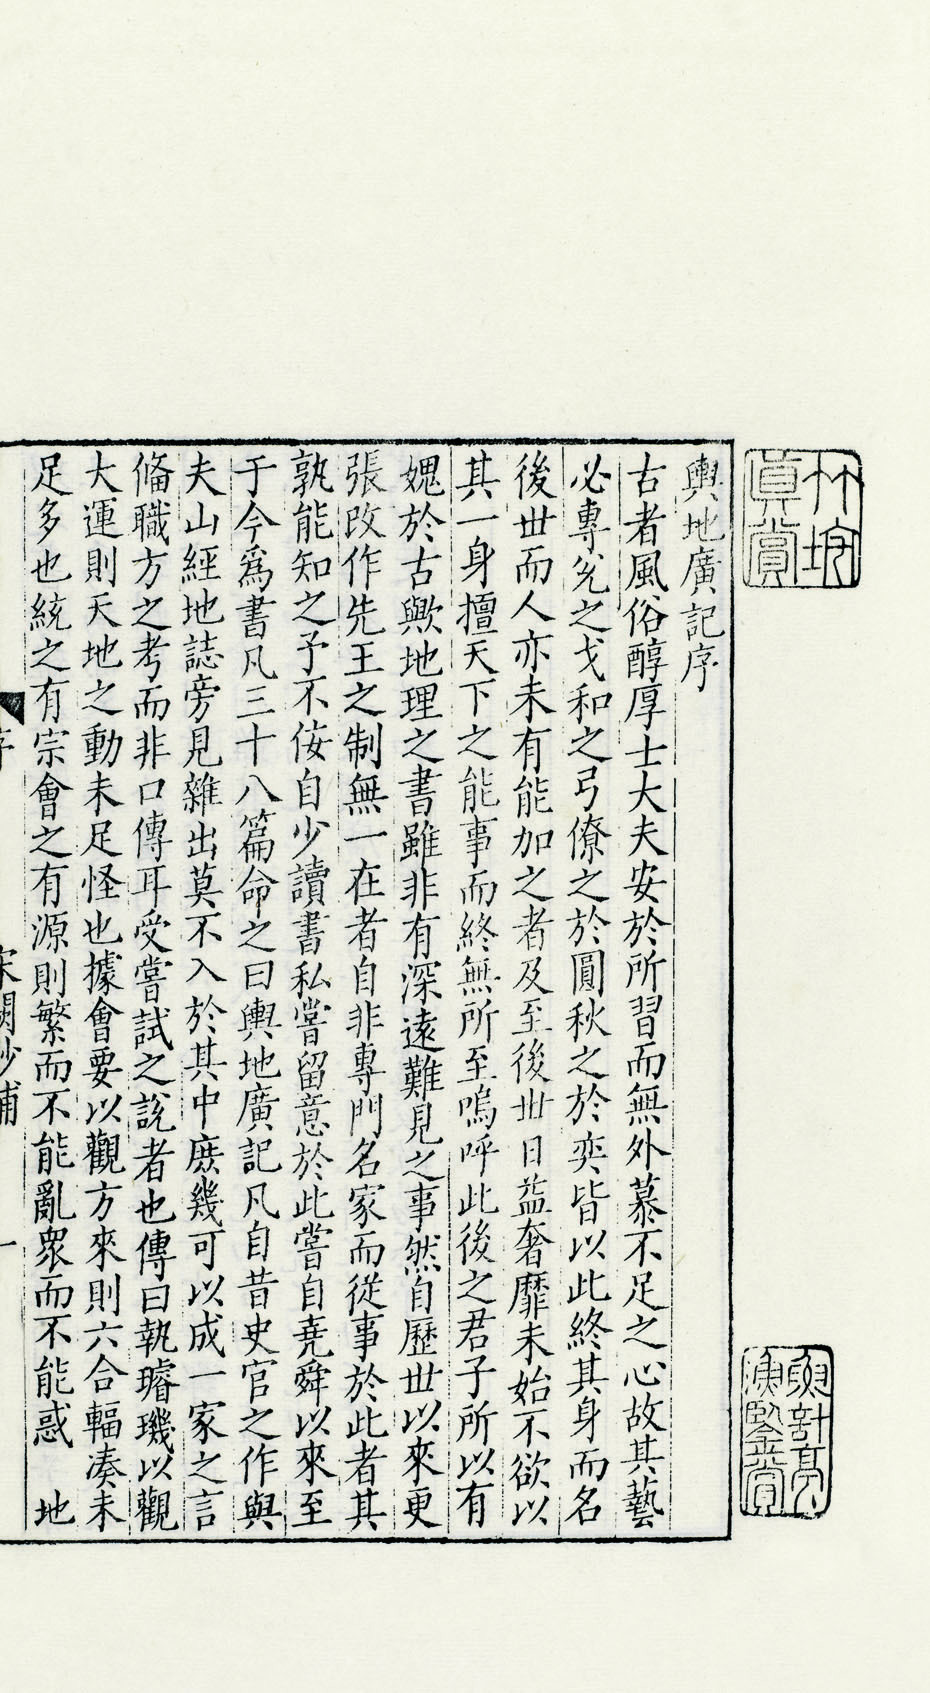 輿地廣記序
古者風俗醇厚士大夫安於所習而無外慕不足之心故其藝
必專兊之戈和之弓僚之於圓秋之於奕皆以此終其身而名
後丗而人亦未有能加之者及至後丗日益奢靡未始不欲以
其一身擅天下之能事而終無所至嗚呼此後之君子所以有
媿於古歟地理之書雖非有深遠難見之事然自歷世以來更
張改作先王之制無一在者自非專門名家而從事於此者其
孰能知之予不佞自少讀書私嘗留意於此嘗自堯舜以來至
于今爲書凡三十八篇命之曰輿地廣記凡自昔史官之作與
夫山經地誌旁見雜出莫不入於其中庶幾可以成一家之言
偹職方之考而非口傳耳受嘗試之說者也傳曰執璿璣以觀
大運則天地之動未足怪也據會要以觀方來則六合輻湊未
足多也統之有宗會之有源則繁而不能亂衆而不能惑　地
序
宋闕抄補
一
竹垞
眞賞